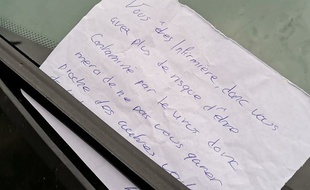 Vous êtes Infirmière, donc vous
avez plus de risque d'être
Contaminée par le virus donc
merci de ne pas vous garer
proche des autres